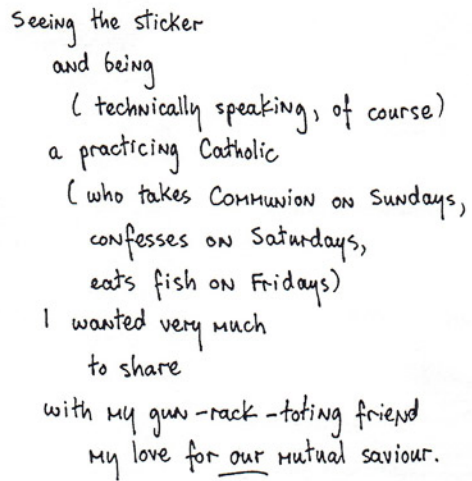 Seeing the sticker
and being
(technically speaking, of course)
a practicing Catholic
(who takes Communion on Sundays,
confesses on Saturdays,
eats fish on Fridays)
I wanted very much
to share
with my gun-rack-toting friend
my love for our mutual saviour.